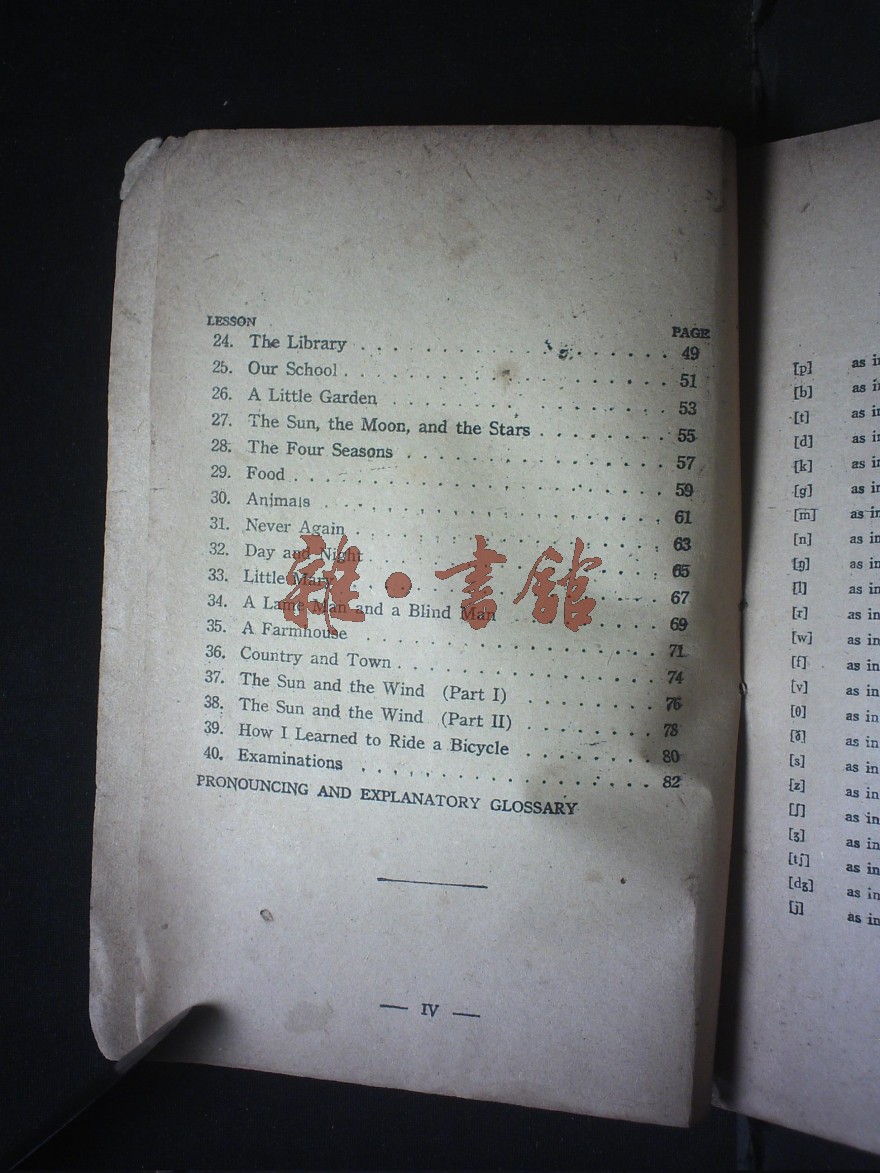 LESSON PAGE
24. The Library . . . . . . . . . . . . . . . . . . . 49
25. Our School . . . . . . . . . . . . . . . . . . . 51
26. A Little Garden . . . . . . . . . . . . . . . . . 53
27. The Sun, the Moon, and the Stars . . . . . . . . 55
28. The Four Seasons . . . . . . . . . . . . . . . . 57
29. Food . . . . . . . . . . . . . . . . . . . . . . 59
30. Animals . . . . . . . . . . . . . . . . . . . . . 61
31. Never Again . . . . . . . . . . . . . . . . . . . 63
32. Day and Night . . . . . . . . . . . . . . . . . . 65
33. Little Mary . . . . . . . . . . . . . . . . . . . 67
34. A Lame Man and a Blind Man . . . . . . . . . . . 69
35. A Farmhouse . . . . . . . . . . . . . . . . . . . 71
36. Country and Town . . . . . . . . . . . . . . . . 74
37. The Sun and the Wind (Part I) . . . . . . . . . 76
38. The Sun and the Wind (Part II) . . . . . . . . . 78
39. How I Learned to Ride a Bicycle . . . . . . . . . 80
40. Examinations . . . . . . . . . . . . . . . . . . 82
PRONOUNCING AND EXPLANATORY GLOSSARY
— IV —
雜·書館
[p] as in
[b] as in
[t] as in
[d] as in
[k] as in
[g] as in
[m] as in
[n] as in
[ŋ] as in
[l] as in
[r] as in
[w] as in
[f] as in
[v] as in
[θ] as in
[ð] as in
[s] as in
[z] as in
[ʃ] as in
[ʒ] as in
[tʃ] as in
[dʒ] as in
[j] as in